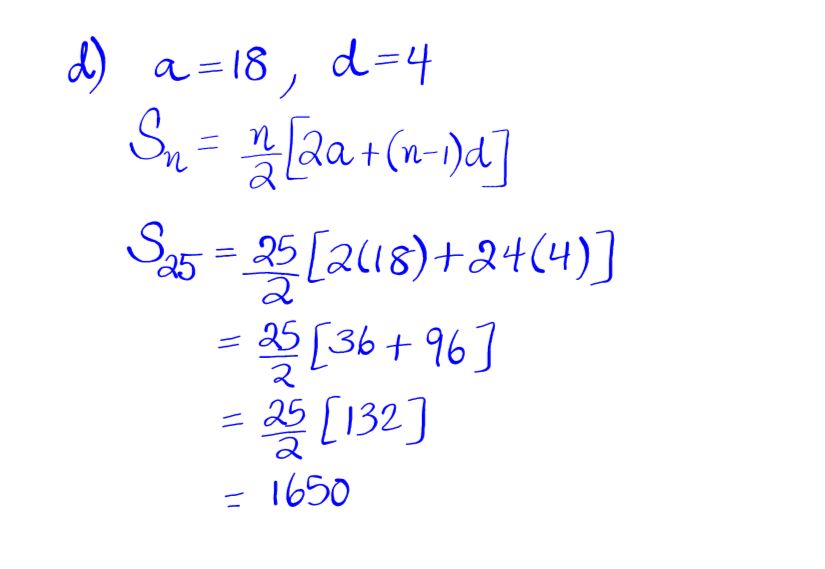 d) a = 18, d = 4
Sₙ = n/2 [2a + (n-1)d]
S₂₅ = 25/2 [2(18) + 24(4)]
= 25/2 [36 + 96]
= 25/2 [132]
= 1650